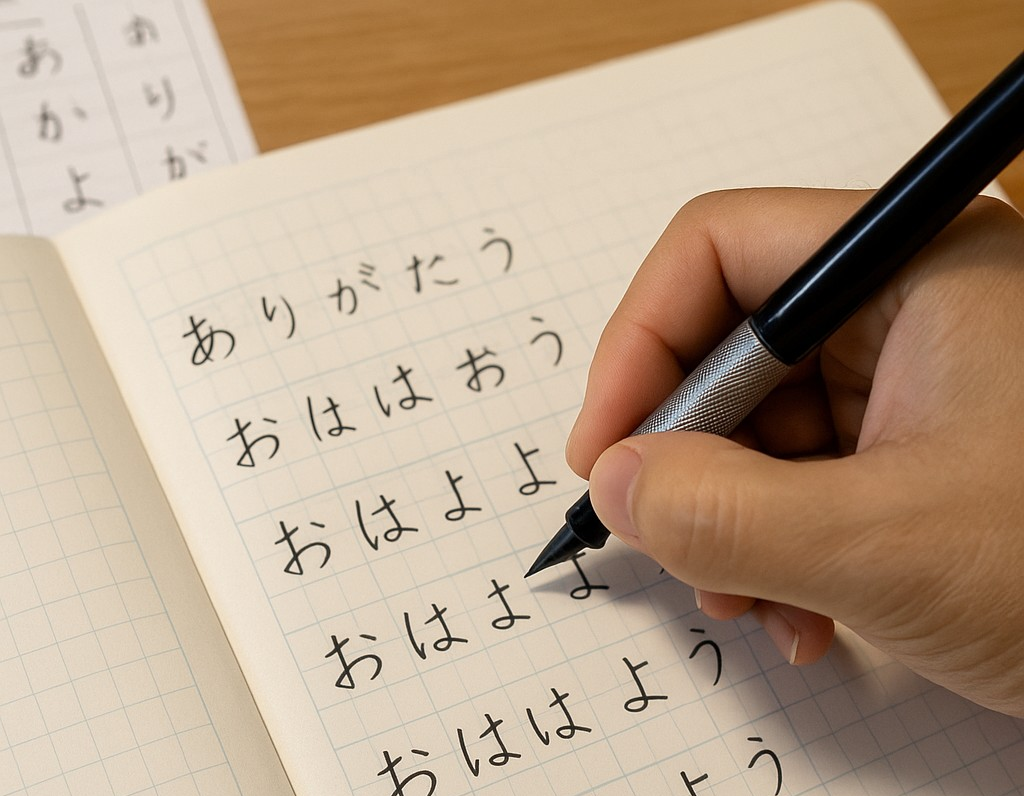 あかよ
ありが
ありがたう
おははおう
おはよよ
おはよよ
おははよう
およう